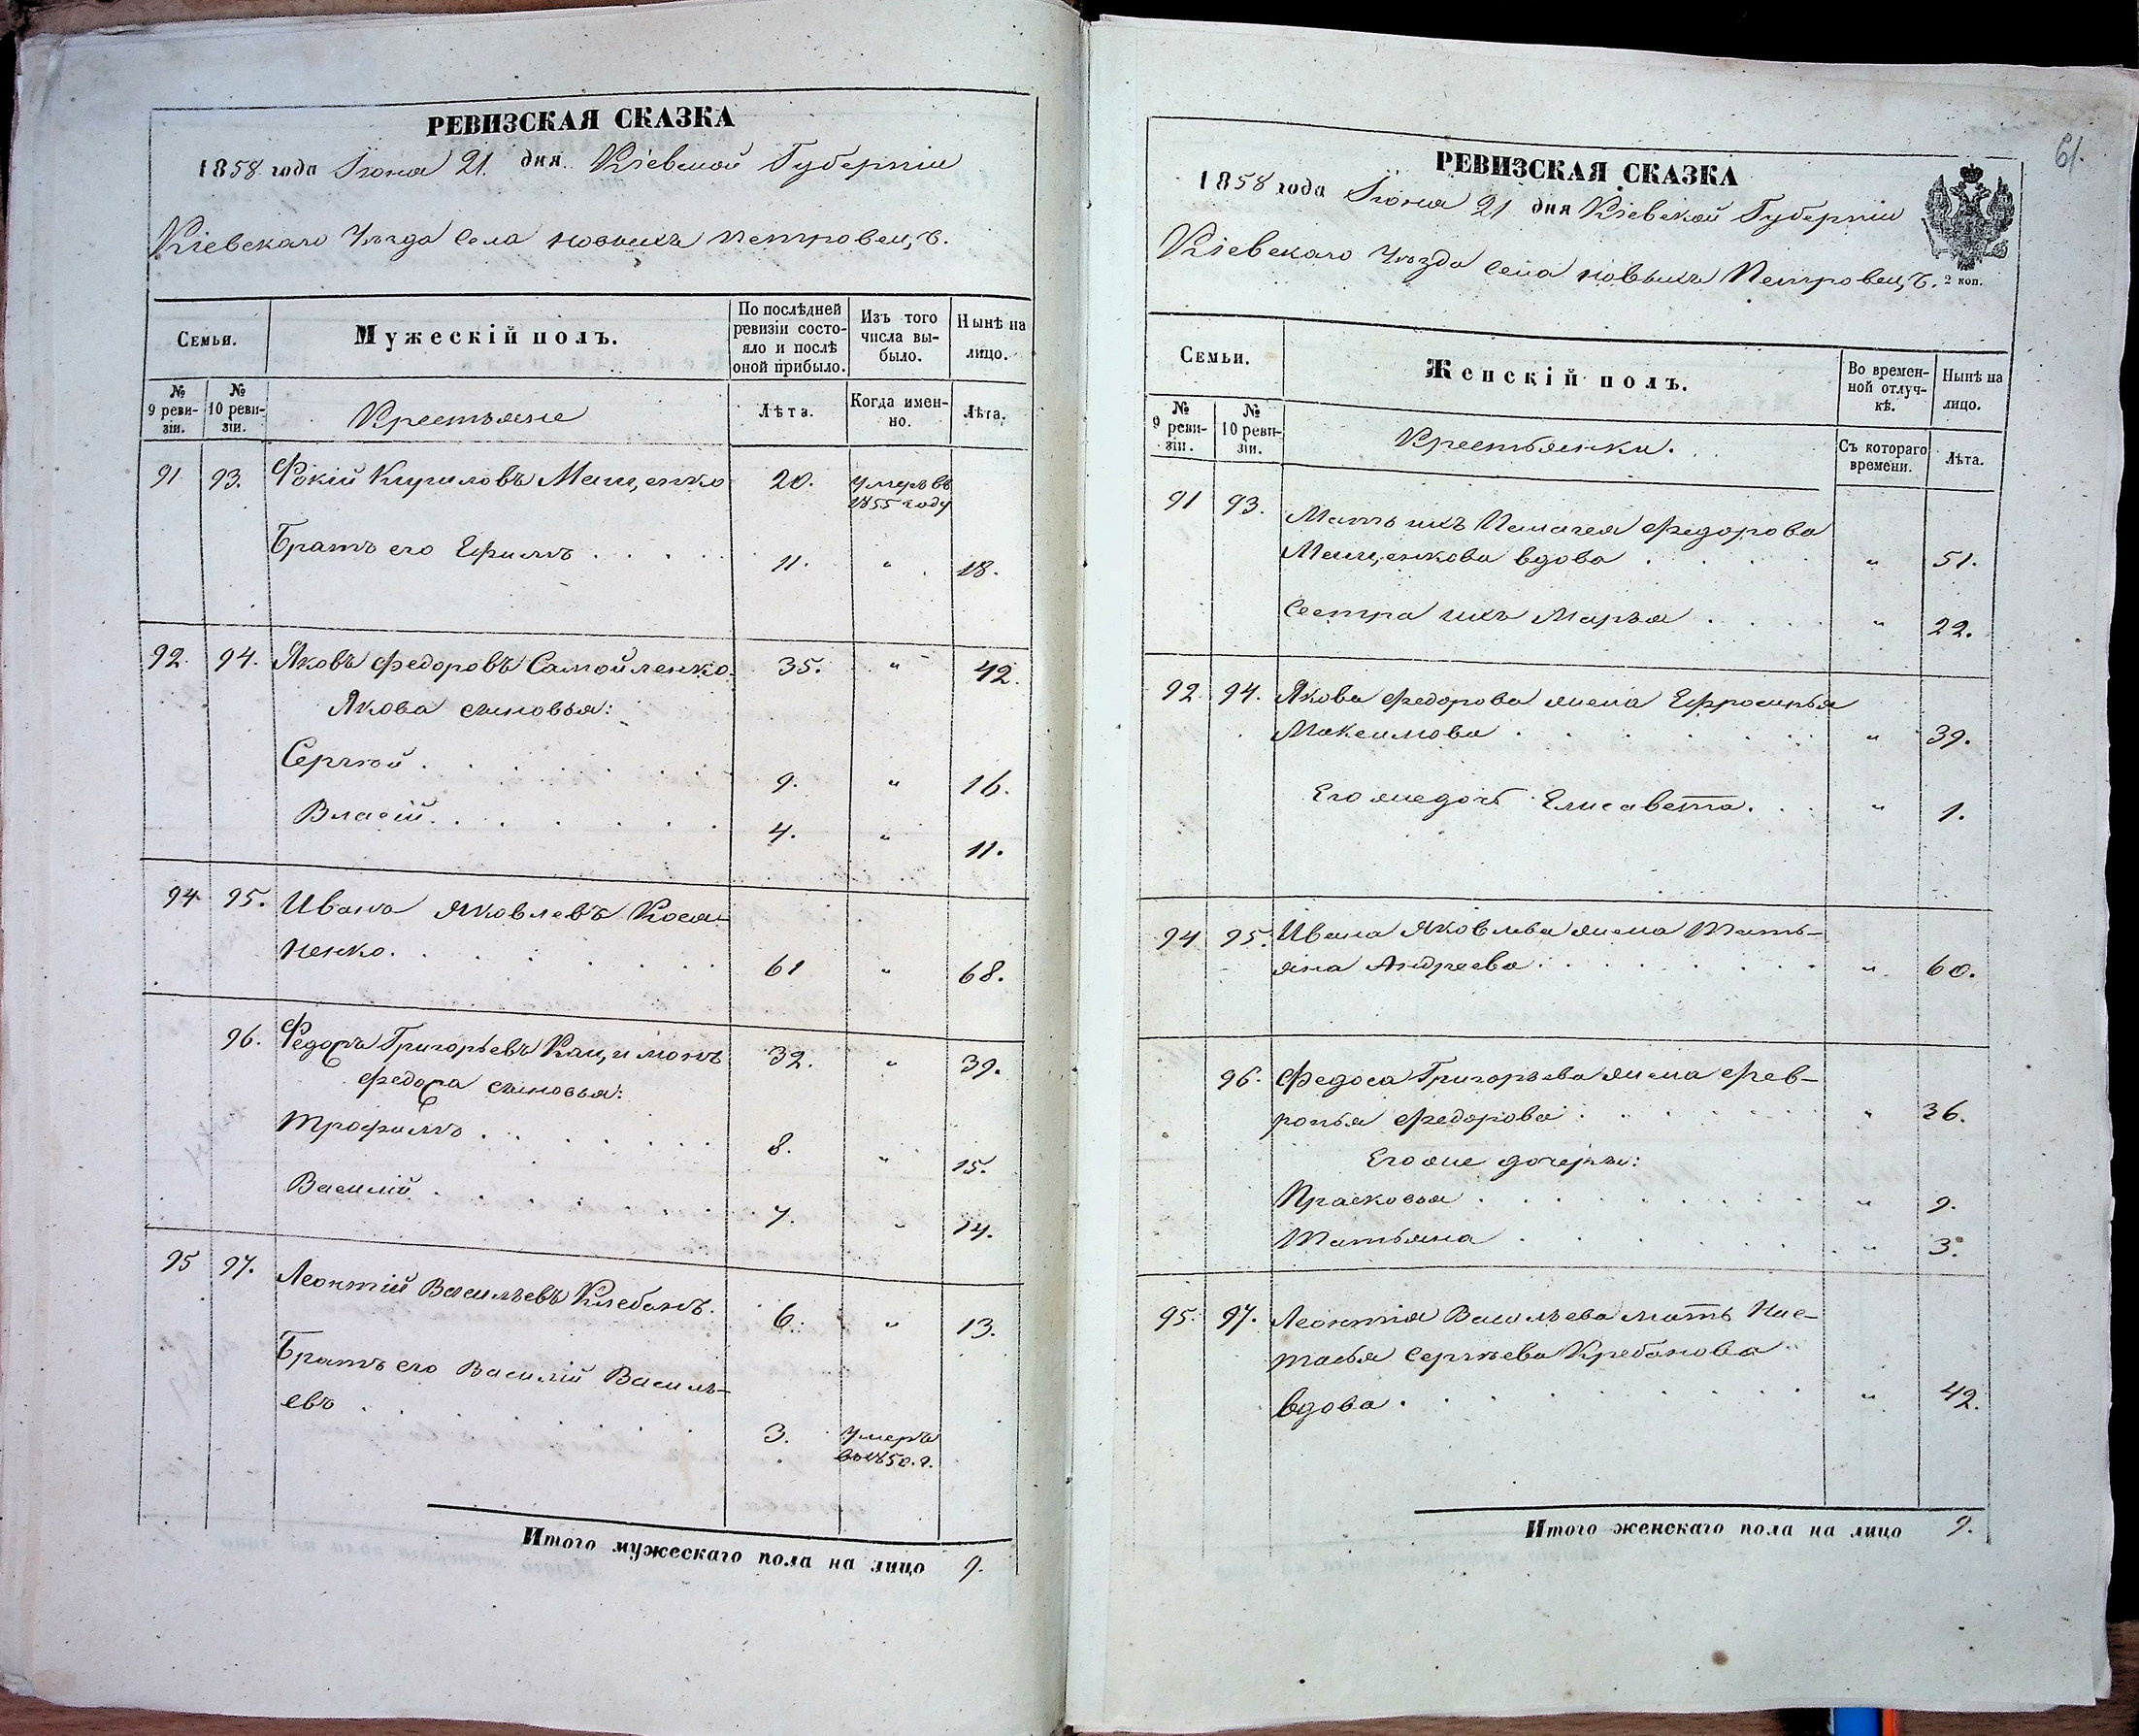 РЕВИЗСКАЯ СКАЗКА
1858 года Іюня 21 дня Кіевской Губерніи
Кіевскаго Уѣзда Села новыхъ Петровецъ.
Семьи.
Мужескій полъ.
По послѣдней ревизіи состояло и послѣ оной прибыло.
Изъ того числа выбыло.
Нынѣ на лицо.
№ 9 ревизіи.
№ 10 ревизіи.
Крестьяне
Лѣта.
Когда именно.
Лѣта.
91 93. Фокій Кириловъ Мащенко 20. умеръ въ 1855 году
Братъ его Ефимъ . . . . 11. " 18.
92. 94. Яковъ Федоровъ Самойленко. 35. " 42.
Якова сыновья:
Сергѣй . . . . . . . 9. " 16.
Власій . . . . . . . 4. " 11.
94 95. Иванъ Яковлевъ Коса-
ненко . . . . . . . 61 " 68.
96. Федоръ Григорьевъ Кацимонъ 32. " 39.
Федора сыновья:
Трофимъ . . . . . . . 8. " 15.
Василій . . . . . . . 7. " 14.
95 97. Леонтій Васильевъ Клебанъ. 6. " 13.
Братъ его Василій Василь-
евъ . . . . . . . 3. Умеръ въ 1850. г.
Итого мужескаго пола на лицо 9.
61.
РЕВИЗСКАЯ СКАЗКА
1858 года Іюня 21 дня Кіевской Губерніи
Кіевскаго Уѣзда Села новыхъ Петровецъ.
2 коп.
Семьи.
Женскій полъ.
Во временной отлучкѣ.
Нынѣ на лицо.
№ 9 ревизіи.
№ 10 ревизіи.
Крестьянки.
Съ котораго времени.
Лѣта.
91 93. Мать ихъ Пелагея Федорова
Мащенкова вдова . . . . " 51.
Сестра ихъ Марья . . . . " 22.
92 94. Якова Федорова жена Ефросинья
Максимова . . . . . . " 39.
Его же дочь Елисавета. . . " 1.
94 95. Ивана Яковлева жена Тать-
яна Андреева . . . . . . . " 60.
96. Федоса Григорьева жена Фев-
ронья Федорова . . . . . . " 36.
Его же дочери:
Прасковья . . . . . . . " 9.
Татьяна . . . . . . . " 3.
95. 97. Леонтія Васильева мать Нас-
тасья Сергѣева Кребанова
вдова . . . . . . . " 42.
Итого женскаго пола на лицо 9.